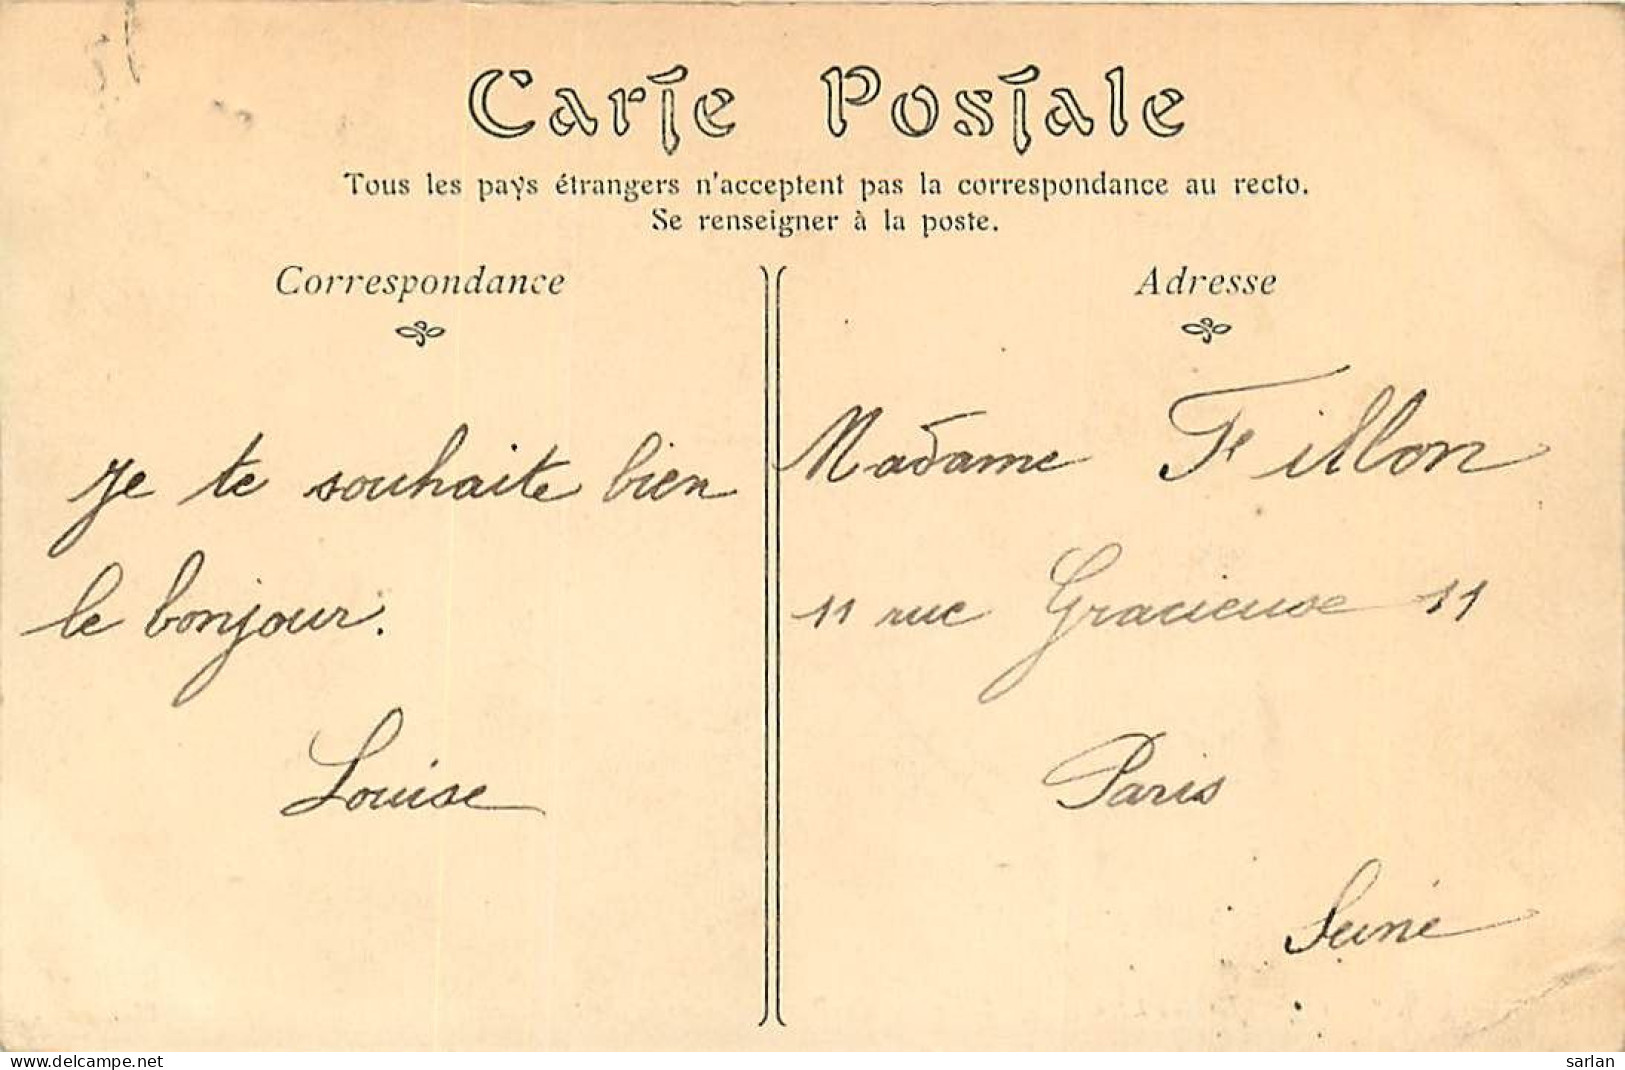 Carte Postale
Tous les pays étrangers n'acceptent pas la correspondance au recto.
Se renseigner à la poste.
Correspondance
Je te souhaite bien
le bonjour.
Louise
Adresse
Madame Fillon
11 rue Gracieuse 11
Paris
Seine
www.delcampe.net
sarlan